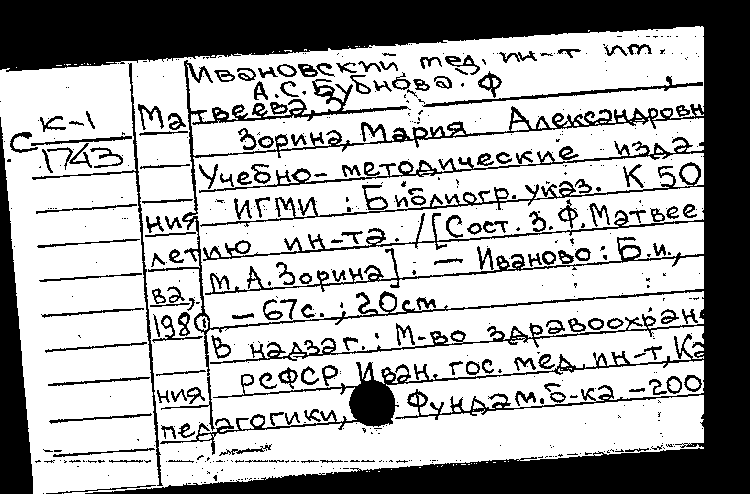 Ивановский мед. ин-т им.
А.С.Бубнова.
К-1
С 1743
Матвеева, З Ф ,
Зорина, Мария Александровн
Учебно-методические изда-
ния ИГМИ : Библиогр. указ. К 50
летию ин-та. /[Сост. З.Ф.Матвее-
ва, М.А.Зорина]. — Иваново : Б.и.,
1980 — 67с. ; 20см.
В надзаг.: М-во здравоохране
ния РСФСР, Иван. гос. мед. ин-т, Ка
педагогики, Фундам. б-ка. — 200